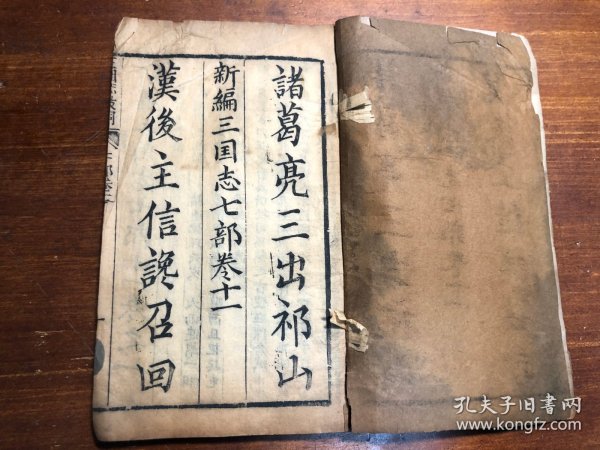 諸葛亮三出祁山
新編三国志七部卷十一
漢後主信讒召回
孔夫子旧書网
www.kongfz.com